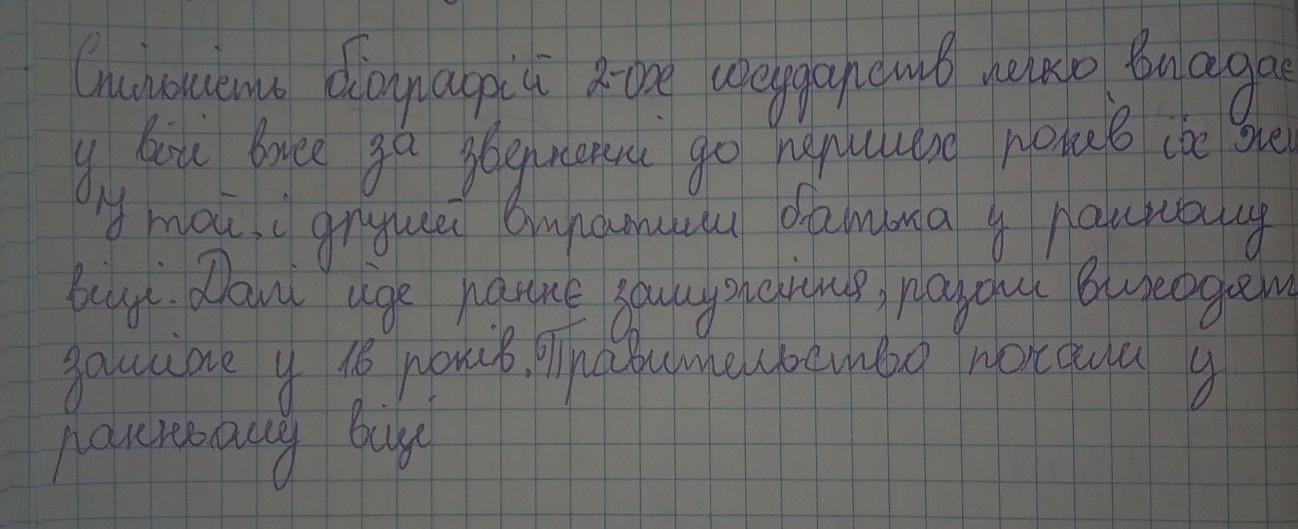 Спільність біографій 2-ох государств легко впадає
у вічі вже за зверненні до перших років їх
У той, і другий втратили батька у ранньому
віці. Далі йде раннє замужіння, разом виходят
заміж у 16 років. Правительство почали у
ранньому віці